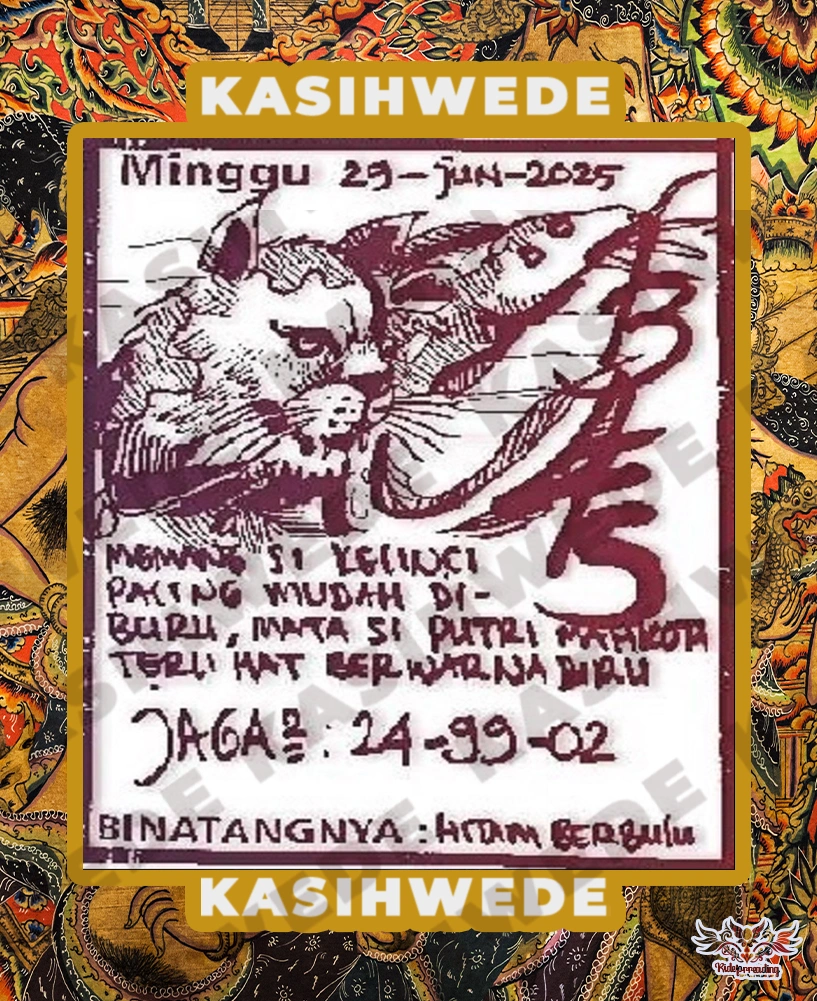 KASIHWEDE
Minggu 29-JUN-2025
MEMANG SI KELINCI
PALING MUDAH DI-
BURU, MATA SI PUTRI MAHKOTA
TERLIHAT BERWARNA BIRU
JAGA2 : 24-99-02
BINATANGNYA : HITAM BERBULU
KASIHWEDE